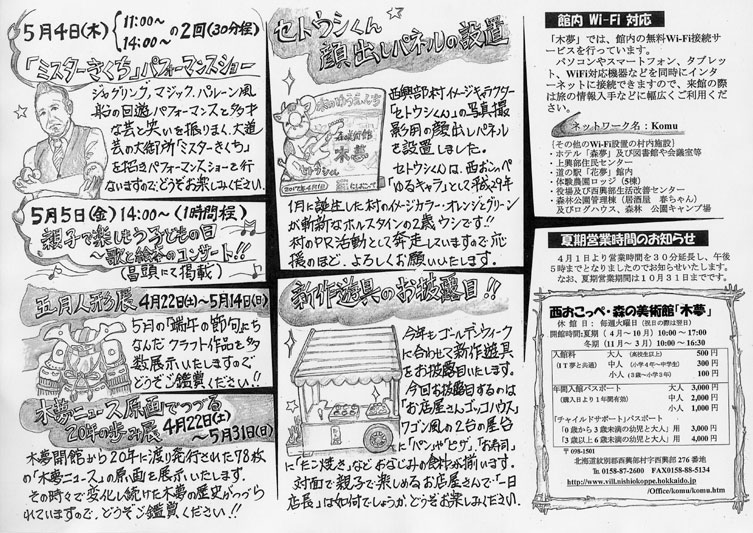 5月4日(木) 11:00〜
14:00〜 の2回(30分程)
「ミスターきくち」パフォーマンスショー
ジャグリング、マジック、バルーン風
船の回遊パフォーマンスと多才
な芸と笑いを振りまく大道
芸の大術師「ミスターきくち」
を招きパフォーマンスショーで行
ないますのでどうぞお楽しみください。
5月5日(金) 14:00〜(1時間程)
親子で楽しもう子どもの日
〜歌と絵本のコンサート!!
(冒頭にて掲載)
五月人形展 4月22日(土)〜5月14日(日)
5月の「端午の節句」にち
なんだクラフト作品も多
数展示いたしますので
どうぞご鑑賞ください!!
木夢ニュース原画でつづる
20年の歩み展 4月22日(土)
〜5月31日(日)
木夢開館から20年に渡り発行された78枚
の「木夢ニュース」の原画を展示いたします。
その時々で変化し続けた木夢の歴史がつづら
れていますので、どうぞご鑑賞ください!!
セトウシくん
顔出しパネルの設置
西興部村イメージキャラクター
「セトウシくん」の写真撮
影用の顔出しパネル
を設置しました。
セトウシくんは、西おこっぺ
「ゆるキャラ」として平成29年
1月に誕生した村のイメージカラー・オレンジとグリーン
が斬新なホルスタインの2歳ウシです!!
村のPR活動として奔走していますので応
援のほど、よろしくお願いいたします。
森の美術館
木夢
新作遊具のお披露目!!
今年もゴールデンウィーク
に合わせて新作遊具
をお披露目いたします。
今回お披露目するのは
「お店屋さんゴッコハウス」
ワゴン風の2台の屋台
に「パン」や「ピザ」、「お寿司」
に「たこ焼き」などおなじみの食材が揃います。
対面で親子で楽しめるお店屋さんで「一日
店長」は如何でしょうか、どうぞお楽しみください。
館内 Wi-Fi 対応
「木夢」では、館内の無料Wi-Fi接続サ
ービスを行っています。
パソコンやスマートフォン、タブレッ
ト、WiFi対応機器などを同時にインタ
ーネットに接続できますので、来館の際
は旅の情報入手などに幅広くご利用くだ
さい。
ネットワーク名:Komu
{その他のWi-Fi設置の村内施設}
・ホテル「森夢」及び図書館や会議室等
・上興部住民センター
・道の駅「花夢」館内
・体験農園ロッジ(5棟)
・役場及び西興部生活改善センター
・森林公園管理棟(居酒屋 春ちゃん)
及びログハウス、森林 公園キャンプ場
夏期営業時間のお知らせ
4月1日より営業時間を30分延長し、午後
5時までとなりましたのでお知らせいたします。
なお、夏期営業期間は10月31日までです。
西おこっぺ・森の美術館「木夢」
休館日:毎週火曜日(祝日の際は翌日)
開館時間:夏期(4月〜10月)10:00〜17:00
冬期(11月〜3月)10:00〜16:30
入館料 大人(高校生以上) 500円
(IT夢と共通) 中人(小学4年〜中学生) 300円
小人(3歳〜小学3年) 100円
年間入館パスポート 大人 3,000円
(購入日より1年間有効) 中人 2,000円
小人 1,000円
「チャイルドサポート」パスポート
「0歳から3歳未満の幼児と大人」用 3,000円
「3歳以上6歳未満の幼児と大人」用 4,000円
〒098-1501
北海道紋別郡西興部村字西興部276番地
℡0158-87-2600 FAX0158-88-5134
http://www.vill.nishiokoppe.hokkaido.jp
/Office/komu/komu.htm